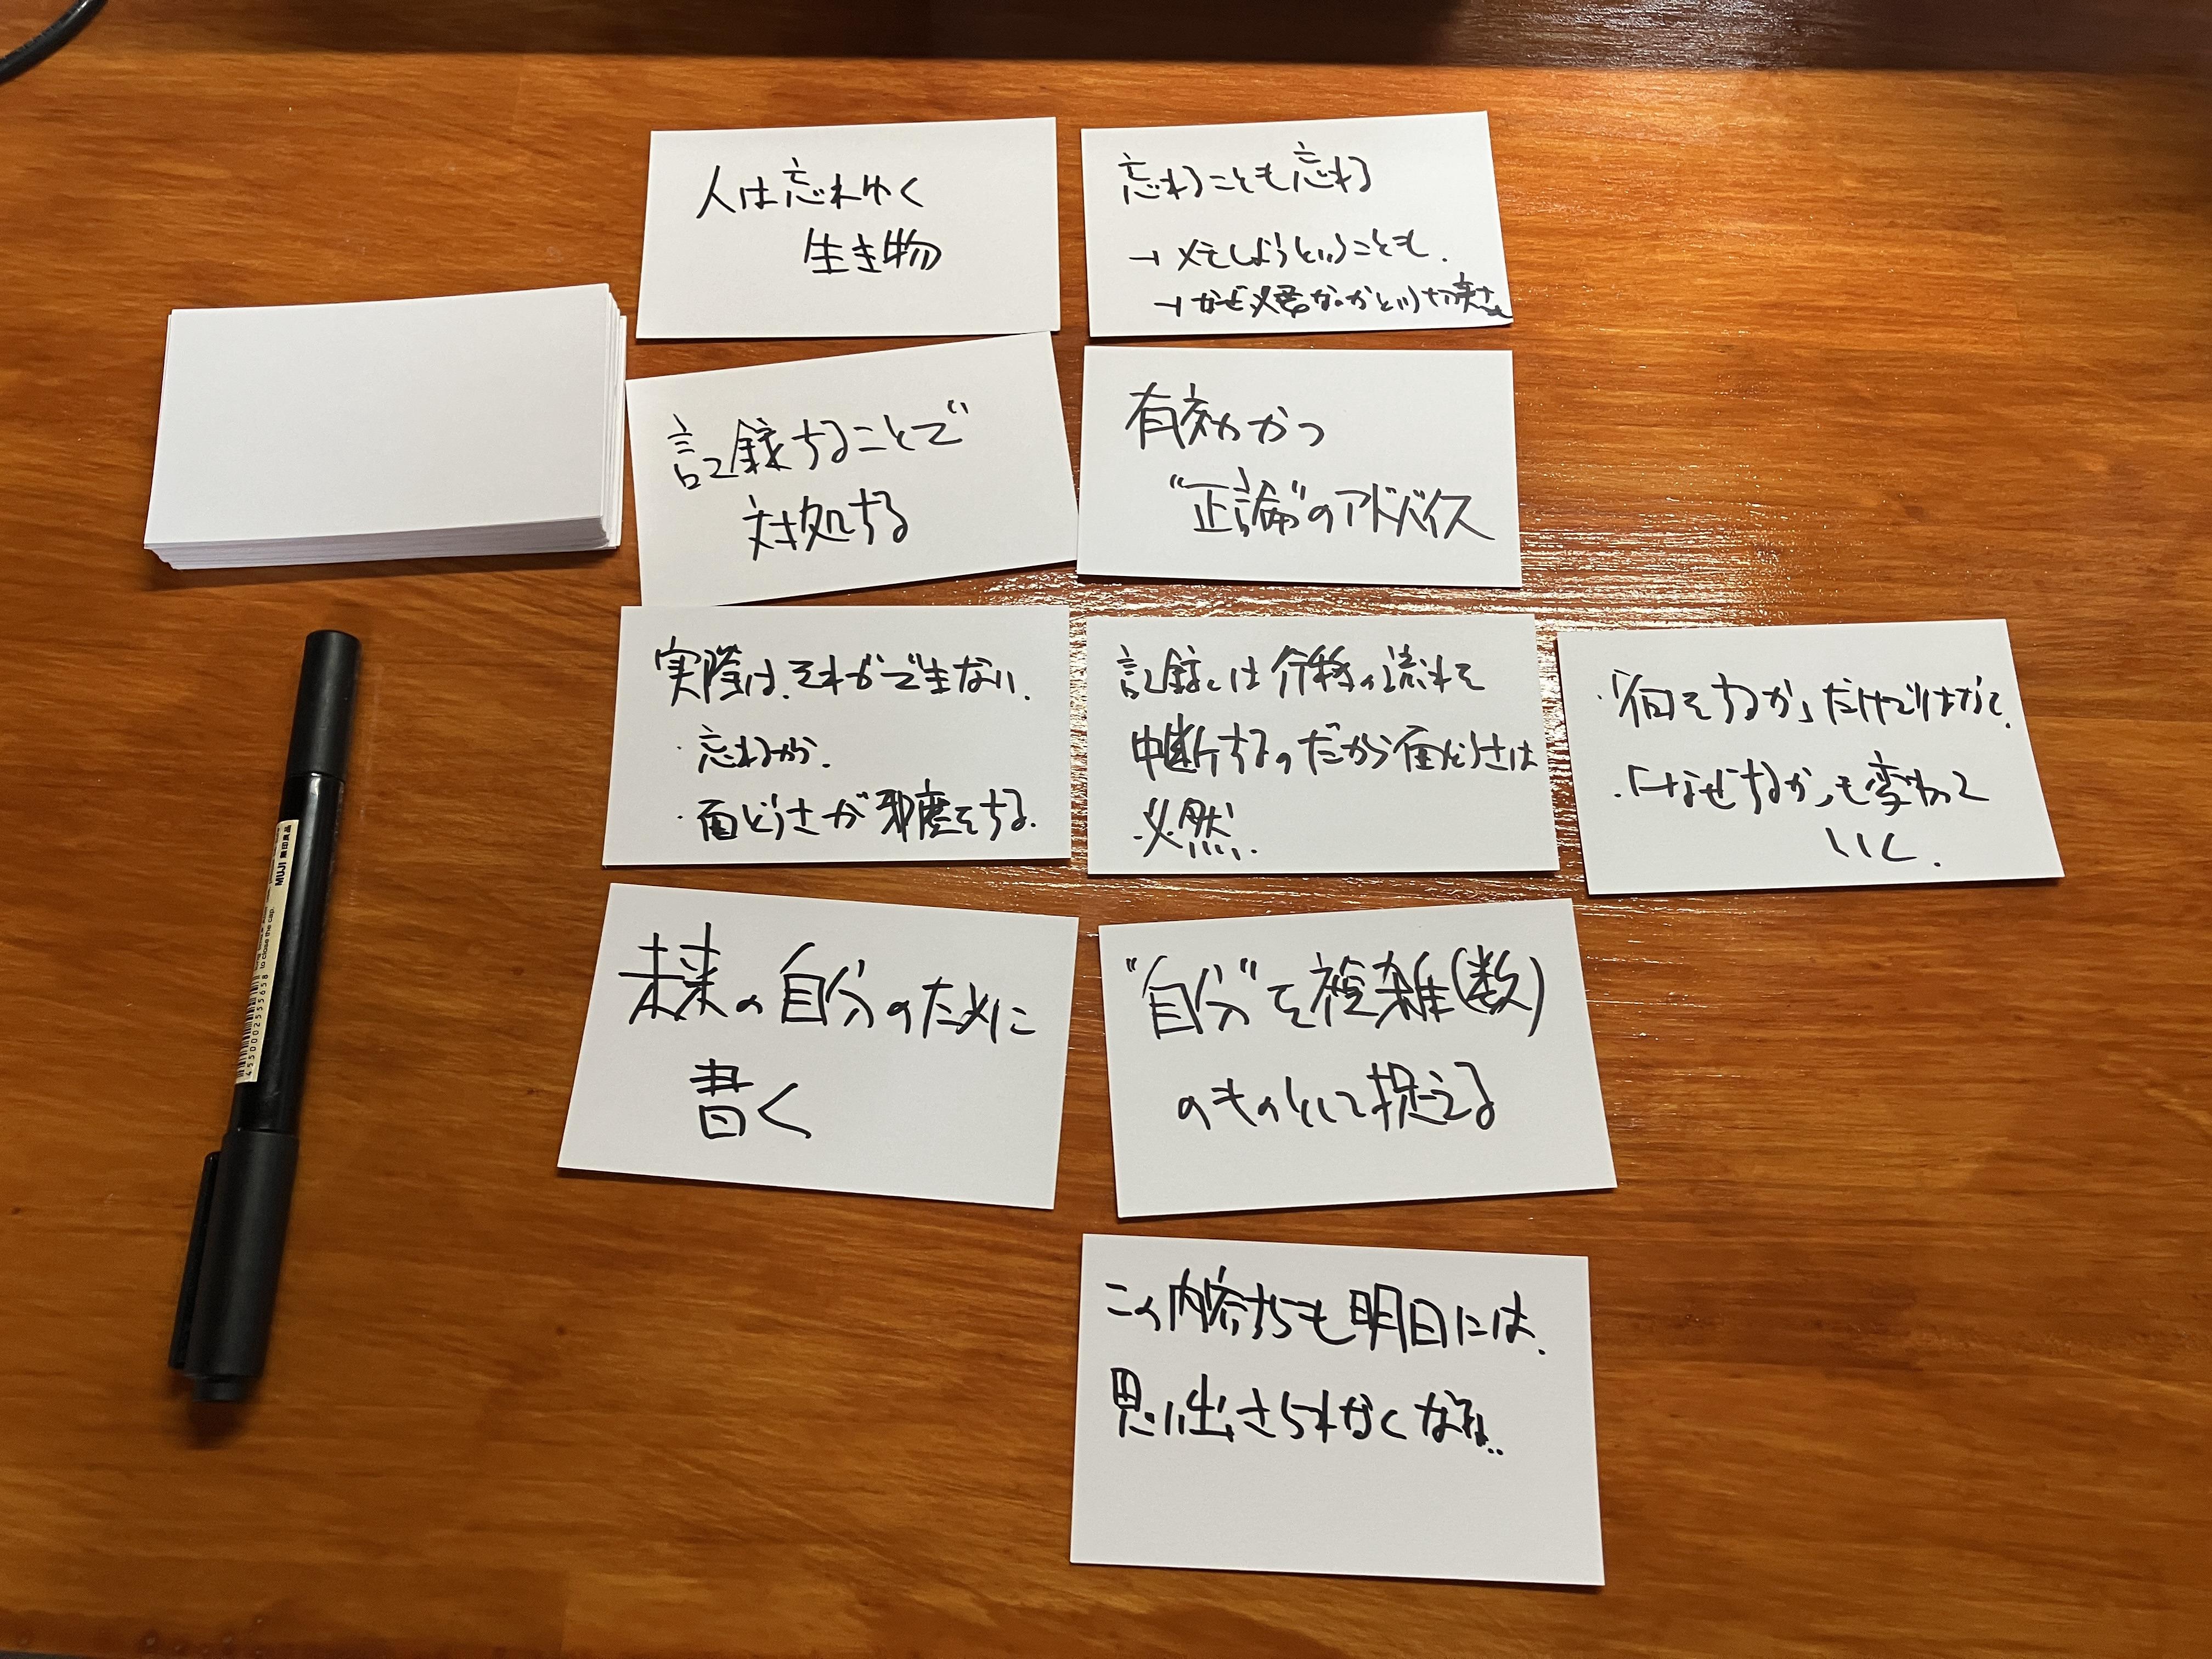 人は忘れゆく
生き物
忘れることも忘れる
→ メモしようということも.
→ なぜ必要なのかという切実さも
記録することで
対処する
有効かつ
“正論”のアドバイス
実際は、それができない.
・忘れるから.
・面どうさが邪魔をする.
記録は行動の流れを
中断するのだから面どうさは
必然.
・「何をするか」だけではなく、
・「なぜするか」も変わって
いく.
未来の自分のために
書く
“自分”を複雑(数)
のものとして捉える
この内容たちも明日には、
思い出さられなくなる..
MUJI 無印良品
to close the cap.
4550002555658